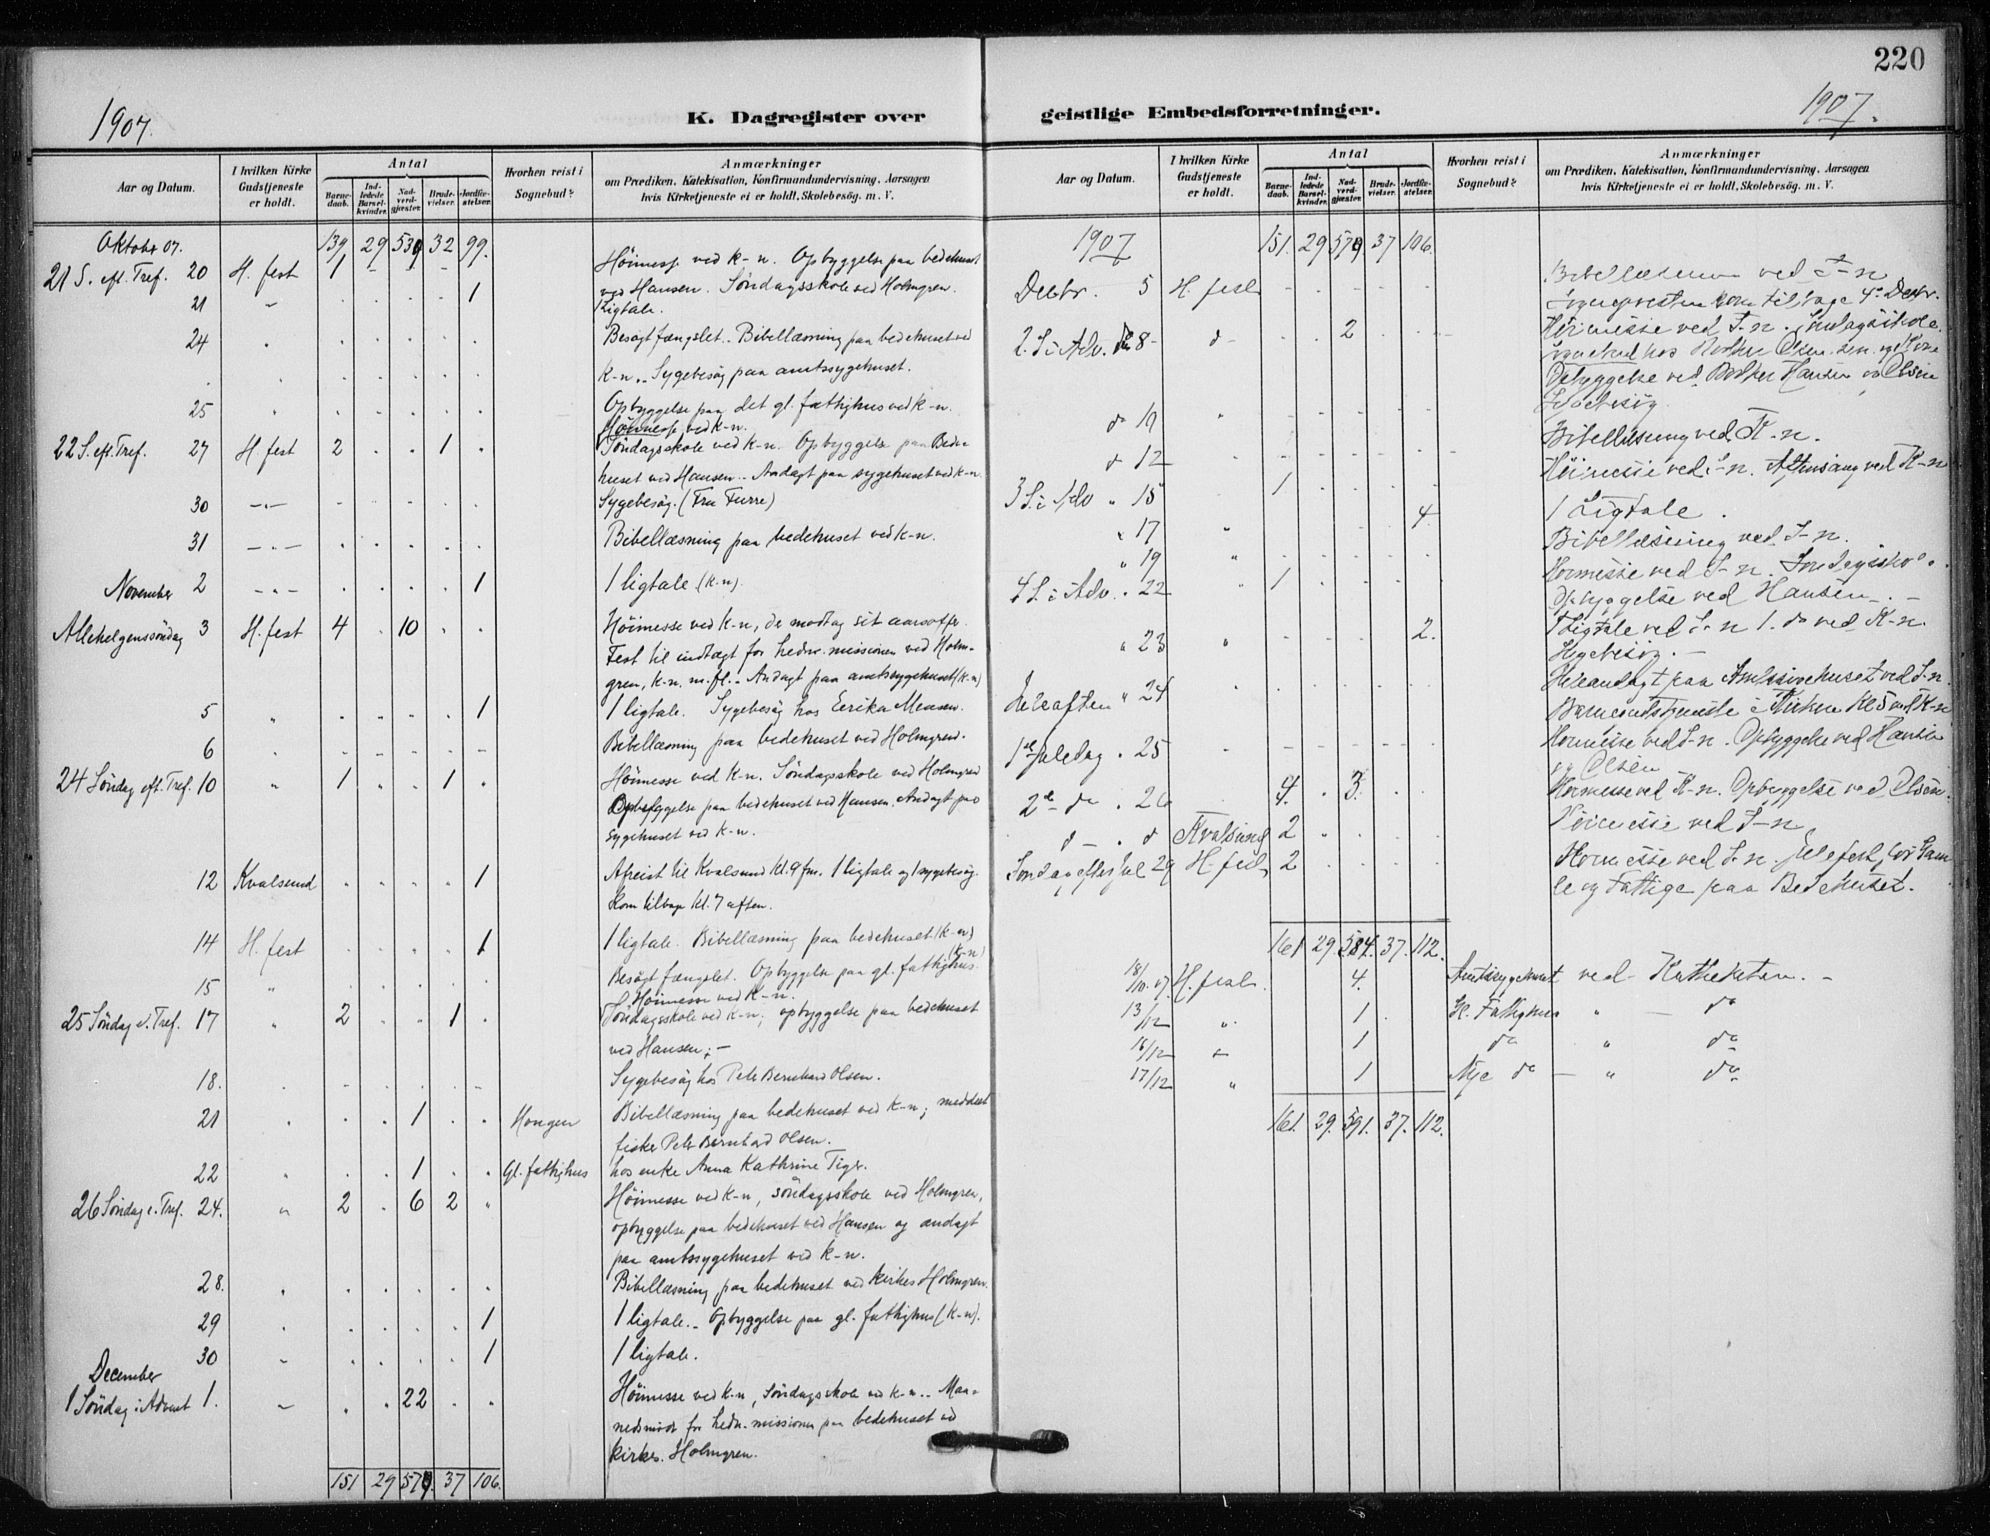 220
1907.
K. Dagregister over geistlige Embedsforretninger.
1907.
Aar og Datum.
I hvilken Kirke Gudstjeneste er holdt.
Antal
Barnedaab.
Indledede Barselkvinder.
Nadverdgjæster.
Brudevielser.
Jordfæstelser.
Hvorhen reist i Sognebud?
Anmærkninger
om Prædiken, Katekisation, Konfirmandundervisning, Aarsagen
hvis Kirketjeneste ei er holdt, Skolebesøg. m. V.
Oktobr 07. 139 29 32 99.
21 S. eft. Tref. 20 H. fest 1 Høimesse ved K-n. Opbyggelse paa bedehuset
ved Hansen. Søndagsskole ved Holmgren.
21 " 1 Ligtale.
24 Besøgt fængslet. Bibellæsning paa bedehuset ved
K-n. Sygebesøg paa amtssygehuset.
25 Opbyggelse paa det gl. fattighus ved K-n.
Høimesse ved K-n.
22 S. eft. Tref. 27 H. fest 2 1 Søndagsskole ved K-n. Opbyggelse paa Bede-
huset ved Hansen. Andagt paa sygehuset ved K-n.
30 -"- Sygebesøg. (Fru Furre)
31 -"- Bibellæsning paa bedehuset ved K-n.
November 2 -"- 1 1 ligtale (K-n)
Allehelgenssøndag 3 H. fest 4 10 Høimesse ved K-n, der modtog sit aarsoffer.
Fest til indtægt for hedn. missionen ved Holm-
gren, K-n. m. fl. - Andagt paa amtssygehuset (K-n)
5 " 1 1 ligtale. Sygebesøg hos Eerika Mensen.
6 " Bibellæsning paa bedehuset ved Holmgren.
24 Søndag eft. Tref. 10 " 1 1 Høimesse ved K-n. Søndagsskole ved Holmgren
Opbyggelse paa bedehuset ved Hansen. Andagt paa
sygehuset ved K-n.
12 Kvalsund 1 Afreist til Kvalsund Kl. 9 fm. 1 ligtale og sygebesøg.
Kom tilbage Kl. 7 aften.
14 H. fest 1 1 ligtale. Bibellæsning paa bedehuset (K-n)
15 " Besøgt fængslet. Opbyggelse paa gl. fattighus. (K-n)
Høimesse ved K-n.
25 Søndag e. Tref. 17 " 2 1 Søndagsskole ved K-n; opbyggelse paa bedehuset
ved Hansen; -
18. Sygebesøg hos Peter Bernhard Olsen.
21 1 Hongen Bibellæsning paa bedehuset ved K-n; meddelt
fisker Peter Bernhard Olsen.
22 1 Gl. fattighus hos enke Anna Kathrine Tiger.
26 Søndag e. Tref. 24. " 2 6 2 Høimesse ved K-n, søndagsskole ved Holmgren,
opbyggelse paa bedehuset ved Hansen og andagt
paa amtssygehuset ved K-n.
28. Bibellæsning paa bedehuset ved kirkes. Holmgren.
29 1 1 ligtale. - Opbyggelse paa gl. fattighus (K-n).
30 1 1 ligtale.
December
1 Søndag i Advent 1. 22 Høimesse ved K-n, søndagsskole ved K-n. - Maa-
nedsmøde for hedn. missionen paa bedehuset ved
kirkes. Holmgren.
151 29 37 106.
Aar og Datum.
I hvilken Kirke Gudstjeneste er holdt.
Antal
Barnedaab.
Indledede Barselkvinder.
Nadverdgjæster.
Brudevielser.
Jordfæstelser.
Hvorhen reist i Sognebud?
Anmærkninger
om Prædiken, Katekisation, Konfirmandundervisning, Aarsagen
hvis Kirketjeneste ei er holdt, Skolebesøg. m. V.
1907 151. 29 37 106.
Decbr. 5 H. fest Bibellæsning ved S-n
Sognepresten kom tilbage 4de Decbr.
2. S. i Adv. 8 d 2 Høimesse ved S-n. Søndagsskole.
Opbyggelse ved Hansen og Olsen
Sygebesøg.
d 12 Bibellæsning ved K-n.
3 S. i Adv " 15 1 Høimesse ved S-n. Aftensang ved K-n
" 17 " 4 1 Ligtale.
" 19 " Bibellæsning ved S-n.
4 S. i Adv. " 22 " 1 Høimesse ved S-n. Søndagsskole.
Opbyggelse ved Hansen. -
" 23 " 2. 1 Ligtale ved S-n 1. do ved K-n.
Sygebesøg. -
Juleaften " 24 Juleandagt paa Amtssygehuset ved S-n.
Barnegudstjeneste i Kirken Kl 5 ved K-n
1ste Juledag " 25 Høimesse ved S-n. Opbyggelse ved Hansen
og Olsen
2den do " 26 4. 3. Høimesse ved K-n. Opbyggelse ved Olsen.
d - " d Kvalsund 2 Høimesse ved S-n.
Søndag efter Jul 29 H. fest 2 Høimesse ved S-n. Julefest for Gam-
le og Fattige paa Bedehuset.
161 29. 584. 37. 112.
18/10. 07. H. fest. 4. Amtssygehuset ved Katheketen. -
13/12 " 1 Gl. Fattighus " - do
16/12 1 do " do
17/12 " 1 Nye do - " do
161. 29. 591. 37. 112.